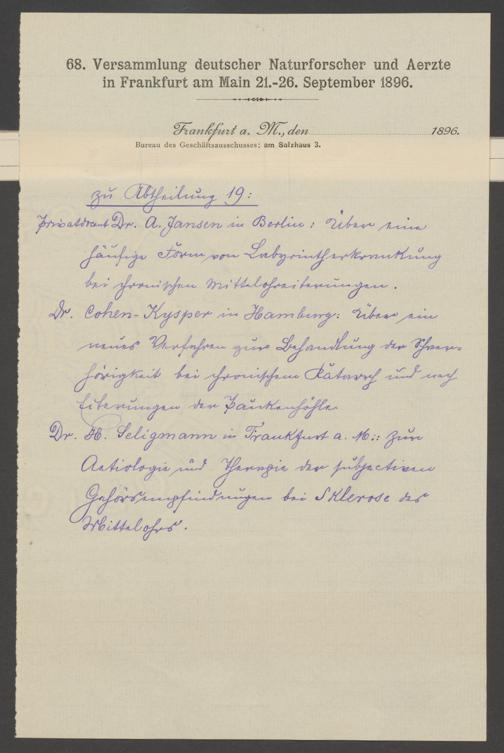 68. Versammlung deutscher Naturforscher und Aerzte
in Frankfurt am Main 21.-26. September 1896.
Frankfurt a. M., den 1896.
Bureau des Geschäftsausschusses: am Salzhaus 3.
zu Abtheilung 19:
Privatdocent Dr. A. Jansen in Berlin: Über eine
häufige Form von Labyrintherkrankung
bei chronischen Mittelohreiterungen.
Dr. Cohen-Kysper in Hamburg: Über ein
neues Verfahren zur Behandlung der Schwer-
hörigkeit bei chronischem Katarrh und nach
Eiterungen der Paukenhöhle
Dr. H. Seligmann in Frankfurt a. M.: Zur
Aetiologie und Therapie der subjectiven
Gehörsempfindungen bei Sklerose des
Mittelohrs.